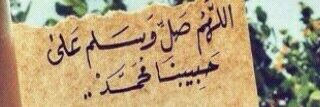 اللهم صل وسلم على
حبيبنا محمد ..